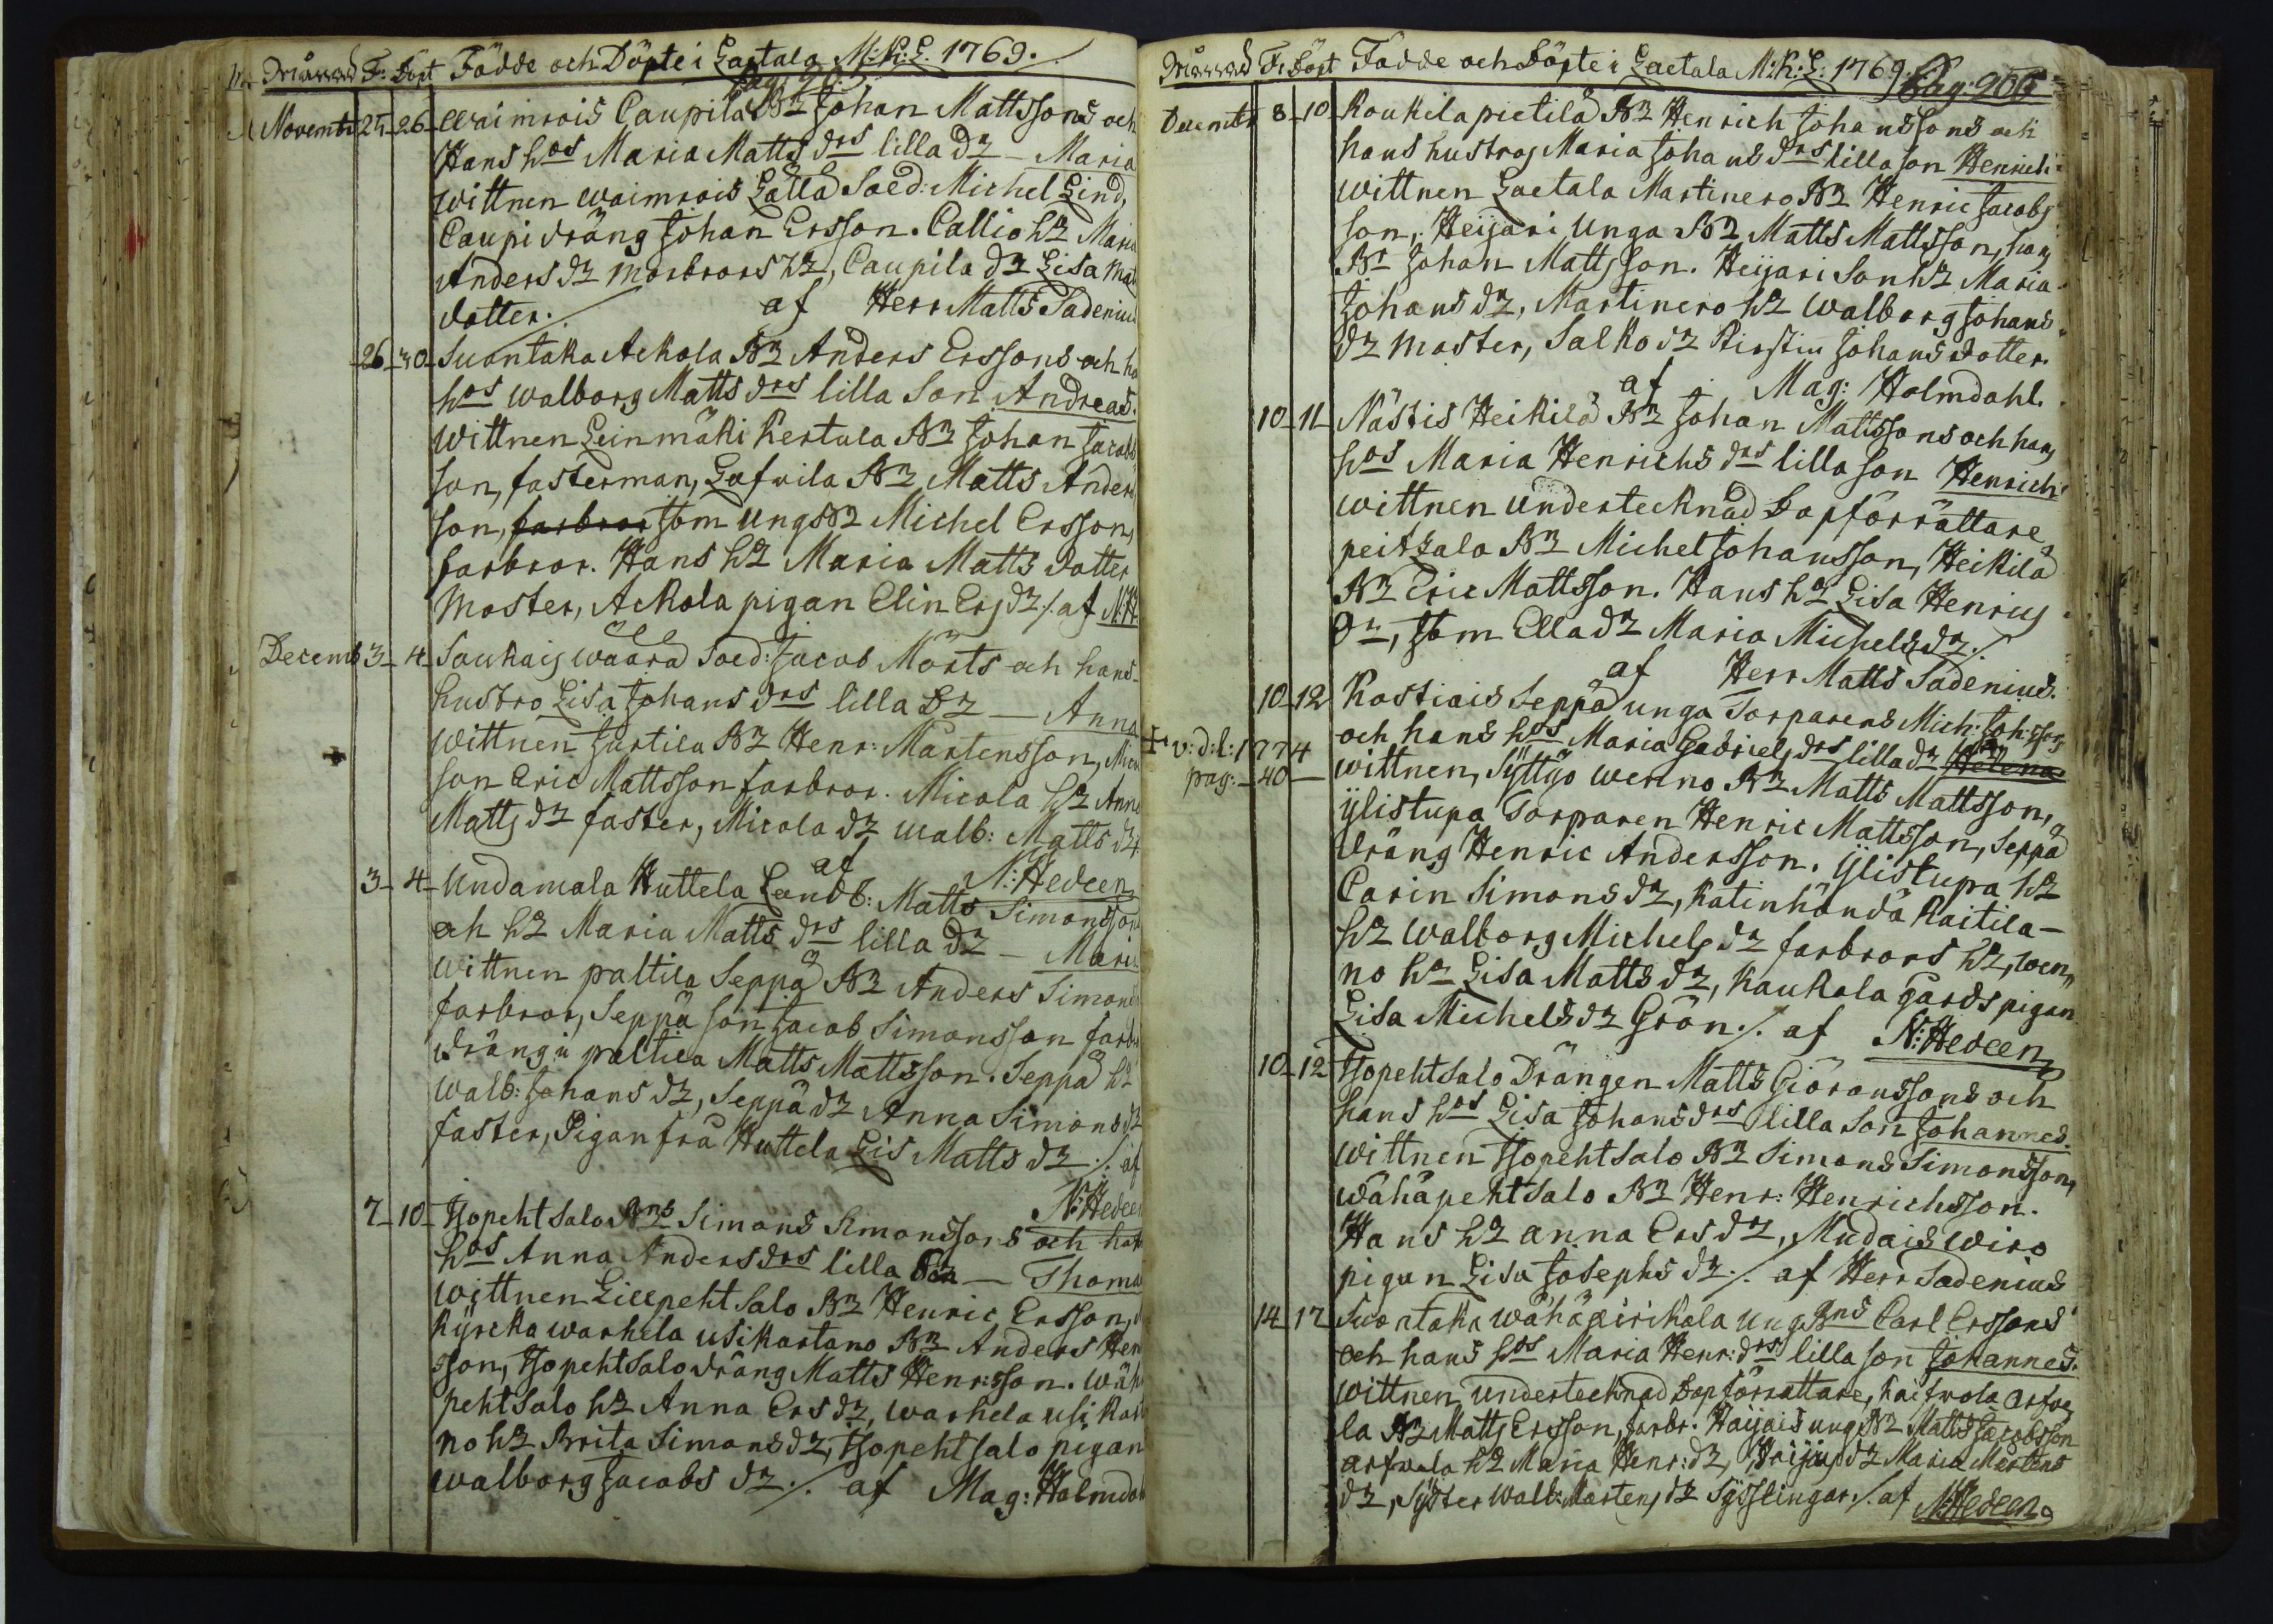 Månad F: Döpt Födde och Döpte i Laetala M:K:L. 1769.
Novembr 25 26 Waimrois Caupila Bz Johan Mattssons och
Hans hos Maria Matts drs lilla dz — Maria
wittnen waimrois Lalla Soed: Michel Lind,
Caupi dräng Johan Ersson. Callio hz Maria
Anders dz morbrors hz, Caupila dz Lisa Mat
dotter. af Herr Matts Sadenius
26 30 Suontaka Ackola Bz Anders Erssons och ha
hos walborg Matts drs lilla Son Andreas.
wittnen Leinmäki Kertula Bz Johan Jacobs
son, fasterman, Lafwila Bz Matts Anders
son, farbror sbm ungsbz Michel Ersson,
farbror. Hans hz Maria Matts dotter
Moster, Ackola pigan Elin Ers dz ./. af N:H
Decemb 3 4 Soukais waara Soed: Jacob Mörts och hans
hustro Lisa Johans drs lilla Dz — Anna
wittnen Jurtila Bz Henr: Mårtensson, Mico
son Eric Mattsson farbror. Micola hz Anna
Matts dz faster, Micola dz walb: Matts dz
af N: Hedeen
3 4 Undamala Huttela Landb: Matts Simonsson
och hz Maria Matts drs lilla dz — Maria
wittnen paltila Seppä Bz Anders Simons
farbror, Seppä son Jacob Simonsson farb
drängi paltila Matts Mattsson. Seppä hz
walb: Johans dz, Seppä dz Anna Simons dz
faster, Pigan frå Huttela Lis Matts dz ./. af
N: Hedeen
7 10 Isopehtsalo Bns Simons Simonssons och hans
hos Anna Anders drs lilla Son — Thomas
wittnen Lillpehtsalo Bz Henric Ersson,
Kyrcka warhela usikartano Bz Anders Hen
sson, Isopehtsalo dräng Matts Henr:sson. Wäh
pehtsalo hz Anna Ers dz, warhela usi kar
no hz Brita Simons dz, Isopehtsalo pigan
walborg Jacobs dz ./. af Mag: Holmdahl
Månad F: Döpt Födde och Döpte i Laetala M:K:L: 1769. Pag: 906
Decembr 8 10 Koukila pietilä Bz Henrich Johanssons och
hans hustrog Maria Johans drs lilla son Henrich
wittnen Laetala Martinero Bz Henric Jacobs
son, Heijari Unga Bz Matts Mattsson, hans
Br Johan Mattsson. Heijari Sonhz Maria
Johans dz, Martinero hz walborg Johans
dz moster, Salko dz Kirstin Johans dotter.
af Mag: Holmdahl.
10 11 Nästis Heikilä Bz Johan Mattssons och hans
hos Maria Henrichs drs lilla son Henrich
wittnen undertecknad Dopförrättare,
peitsalo Bz Michel Johansson, Heikilä
Bz Eric Mattsson. Hans hz Lisa Henrics
Dr, sbm Ella dz Maria Michels dz ./.
af Herr Matts Sadenius.
10 12 Kostiais Seppä unga Torparens Mich: Joh:sons
och hans hos Maria Gabriels drs lilla dz Helena
+ v:d:l: 1774
pag: 40
wittnen, Syttyo wenno Bz Matts Mattsson,
ylistupa Torparen Henric Mattsson, Seppä
dräng Henric Andersson. Ylistupa hz
Carin Simons dz, Katinhändä Kaitila —
hz walborg Michels dz farbrors hz, wen
no hz Lisa Matts dz, Kaukola Gårds pigan
Lisa Michels dz Grön ./. af N: Hedeen
10 12 Isopehtsalo Drängen Matts Giöranssons och
hans hos Lisa Johans drs lilla Son Johannes.
wittnen Isopehtsalo Bz Simons Simonsson,
Wähäpehtsalo Bz Henr: Henrichsson.
Hans hz anna Ers dz, Mudais wiro
pigan Lisa Josephs dz ./. af Herr Sadenius
14 17 Suontaka wähäpirikola ung Bns Carl Erssons
och hans hos Maria Henr: drs lilla son Johannes.
wittnen undertecknad Dopförrättare, Kaifwola arfwe
la Bz Matts Ersson, farbr: Haijais ung Bz Matts Jacobsson
arfwela hz Maria Henr: dz, Haijais dz Maria Mårtens
dz, Syster walb: Mårtens dz Sysslingar ./. af N: Hedeen